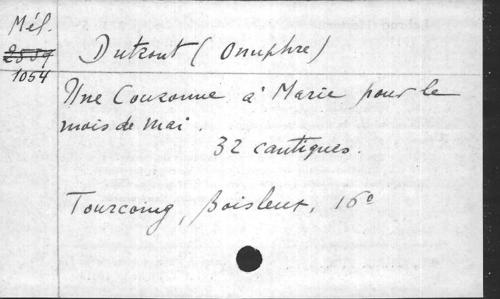 Mél.
2859
1054
Dutrout (Onuphre)
Une Couronne à Marie pour le
mois de mai.
32 cantiques.
Tourcoing, Boisleux, 16º